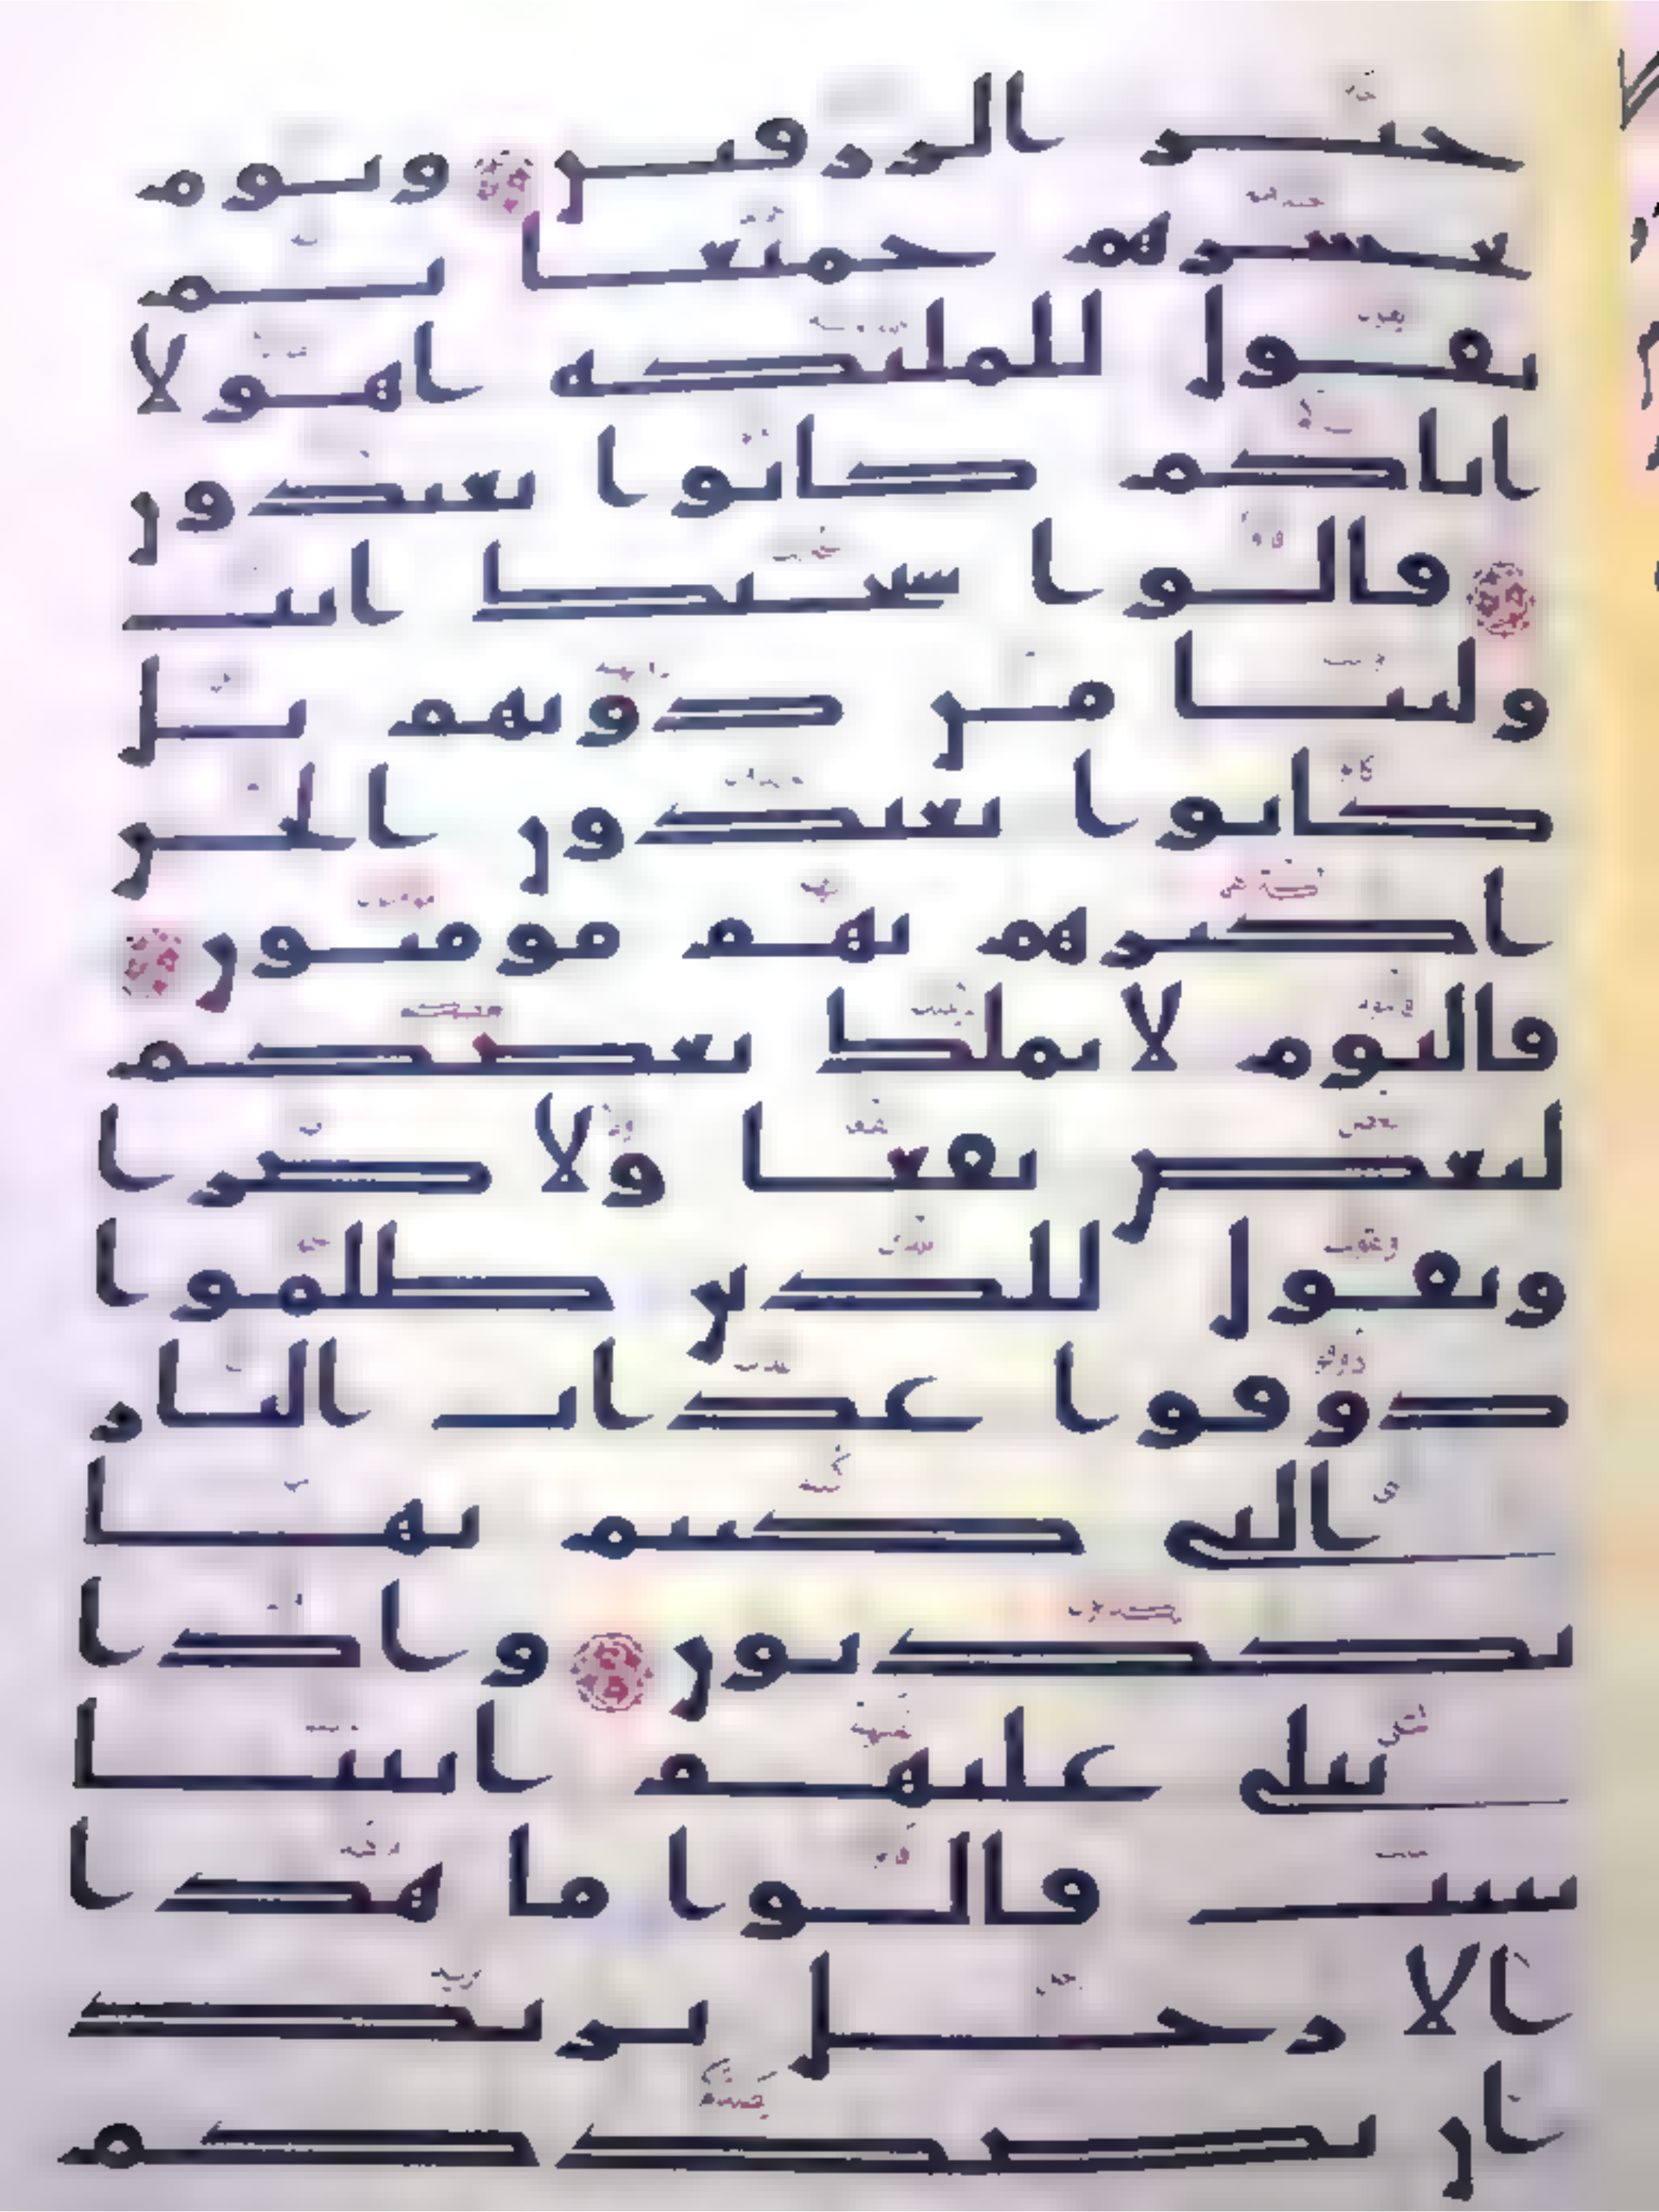 خير الرزقين ويوم
يحشرهم جميعا ثم
يقول للملئكة اهولا
اياكم كانوا يعبدون
قالوا سبحنك انت
ولينا من دونهم بل
كانوا يعبدون الجن
اكثرهم بهم مومنون
فاليوم لا يملك بعضكم
لبعض نفعا ولا ضرا
ونقول للذين ظلموا
ذوقوا عذاب النار
التي كنتم بها
تكذبون واذا
تتلى عليهم ايتنا
بينت قالوا ما هذا
الا رجل يريد
ان يصدكم